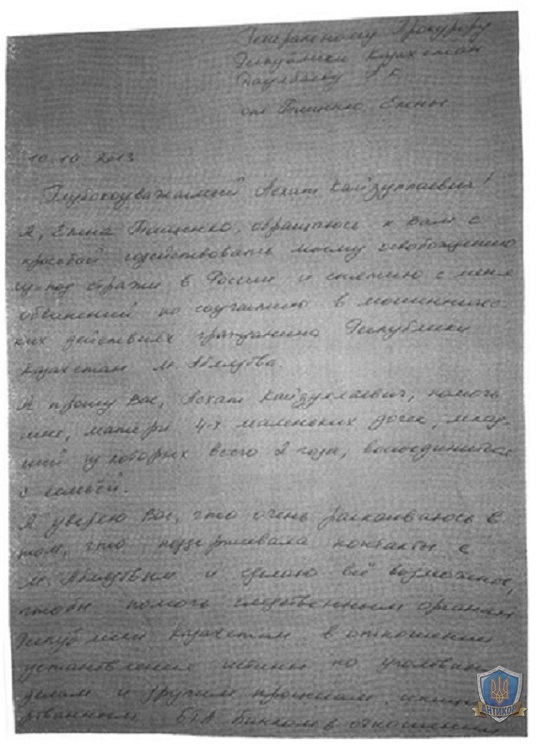 Генеральному Прокурору
Республики Казахстан
Даулбаеву А.К.
от Тищенко Елены
10.10.2013
Глубокоуважаемый Асхат Кайзуллаевич!
Я, Елена Тищенко, обращаюсь к Вам с
просьбой содействовать моему освобождению
из-под стражи в России и снятию с меня
обвинений по соучастию в мошенничес-
ких действиях гражданина Республики
Казахстан М. Аблязова.
Я прошу Вас, Асхат Кайзуллаевич, помочь
мне, матери 4-х маленьких дочек, млад-
шей из которых всего 2 года, воссоединиться
с семьей.
Я уверяю Вас, что очень раскаиваюсь в
том, что поддерживала контакты с
М. Аблязовым и сделаю всё возможное,
чтобы помочь следственным органам
Республики Казахстан в отношении
установления истины по уголовным
делам и другим процессам иниции-
рованным БТА Банком в отношении
АНТИКОР